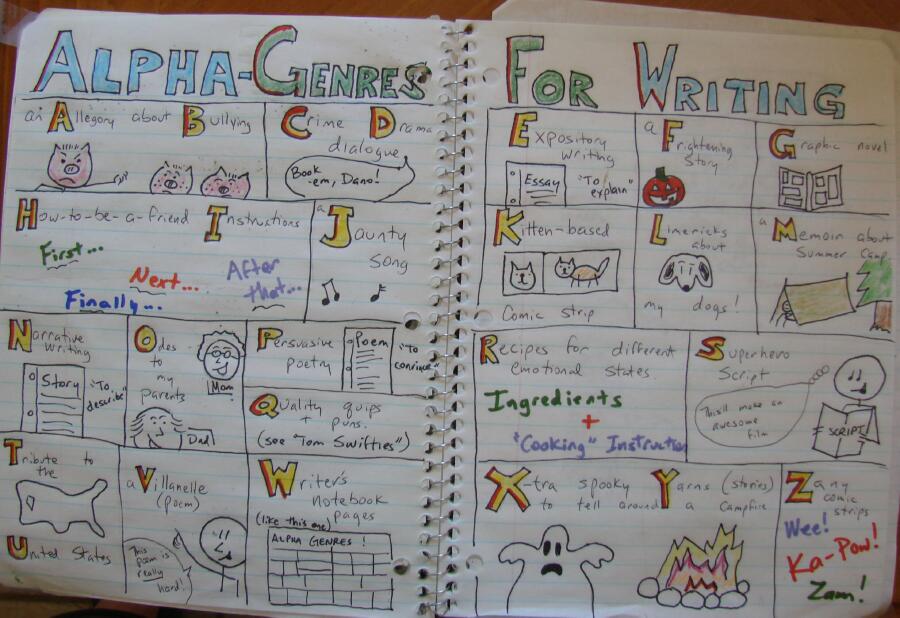 ALPHA-GENRES FOR WRITING
an Allegory about Bullying
Crime Drama
dialogue
Book
-em, Dano!
Expository
writing
Essay
"To
explain"
a Frightening
Story
Graphic novel
How-to-be-a-friend Instructions
First...
Next...
After
that...
Finally...
a Jaunty
Song
Kitten-based
Comic strip
Limericks
about
my dogs!
a Memoir about
Summer Camp
Narrative
Writing
Story
"To
describe"
Odes
to
my
parents
Mom
Dad
Persuasive
poetry
Poem
"To
convince"
Quality quips
+ puns.
(see "Tom Swifties")
Recipes for different
emotional states
Ingredients
+
"Cooking" Instruction
Superhero
Script
This'll make an
awesome
film
SCRIPT
Tribute to
the
United States
a Villanelle
(poem)
This
poem is
really
hard!
Writer's
notebook
pages
(like this one)
ALPHA GENRES!
X-tra spooky Yarns (stories)
to tell around a campfire
Zany
comic
strips
Wee!
Ka-Pow!
Zam!